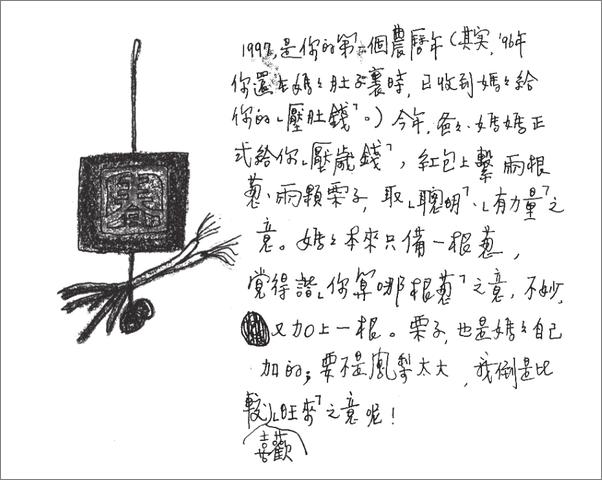 1997,是你的第一個農曆年(其實,'96年
你還在媽々肚子裏時,已收到媽々給
你的「壓肚錢」。)今年,爸々、媽媽正
式給你「壓歲錢」,紅包上繫兩根
蔥、兩顆栗子,取「聰明」、「有力量」之
意。媽々本來只備一根蔥,
覺得諧「你算哪根蔥」之意,不妙,
又加上一根。栗子,也是媽々自己
加的;要不是鳳梨太大,我倒是比
較「旺來」之意呢!
喜歡